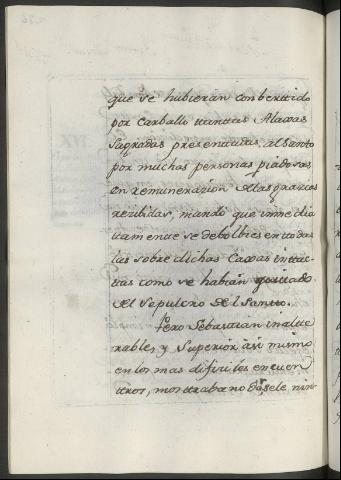 que se hubieran combertido
por Carballo ttanttas Alaxas
Sagradas presenttadas, al Santo
por muchas personas piadosas
en remunerazion de las gracias
rezibidas, mando que inmedia
ttamente se debolbiesen todas
las sobre dichas Caxas intac
tas como se habian quitado
del Sepulcro del Santto.
Pero Sebastian inaltte
rable, y Superior àsi mismo
en los mas dificiles encuen
ttros, mosttraba no